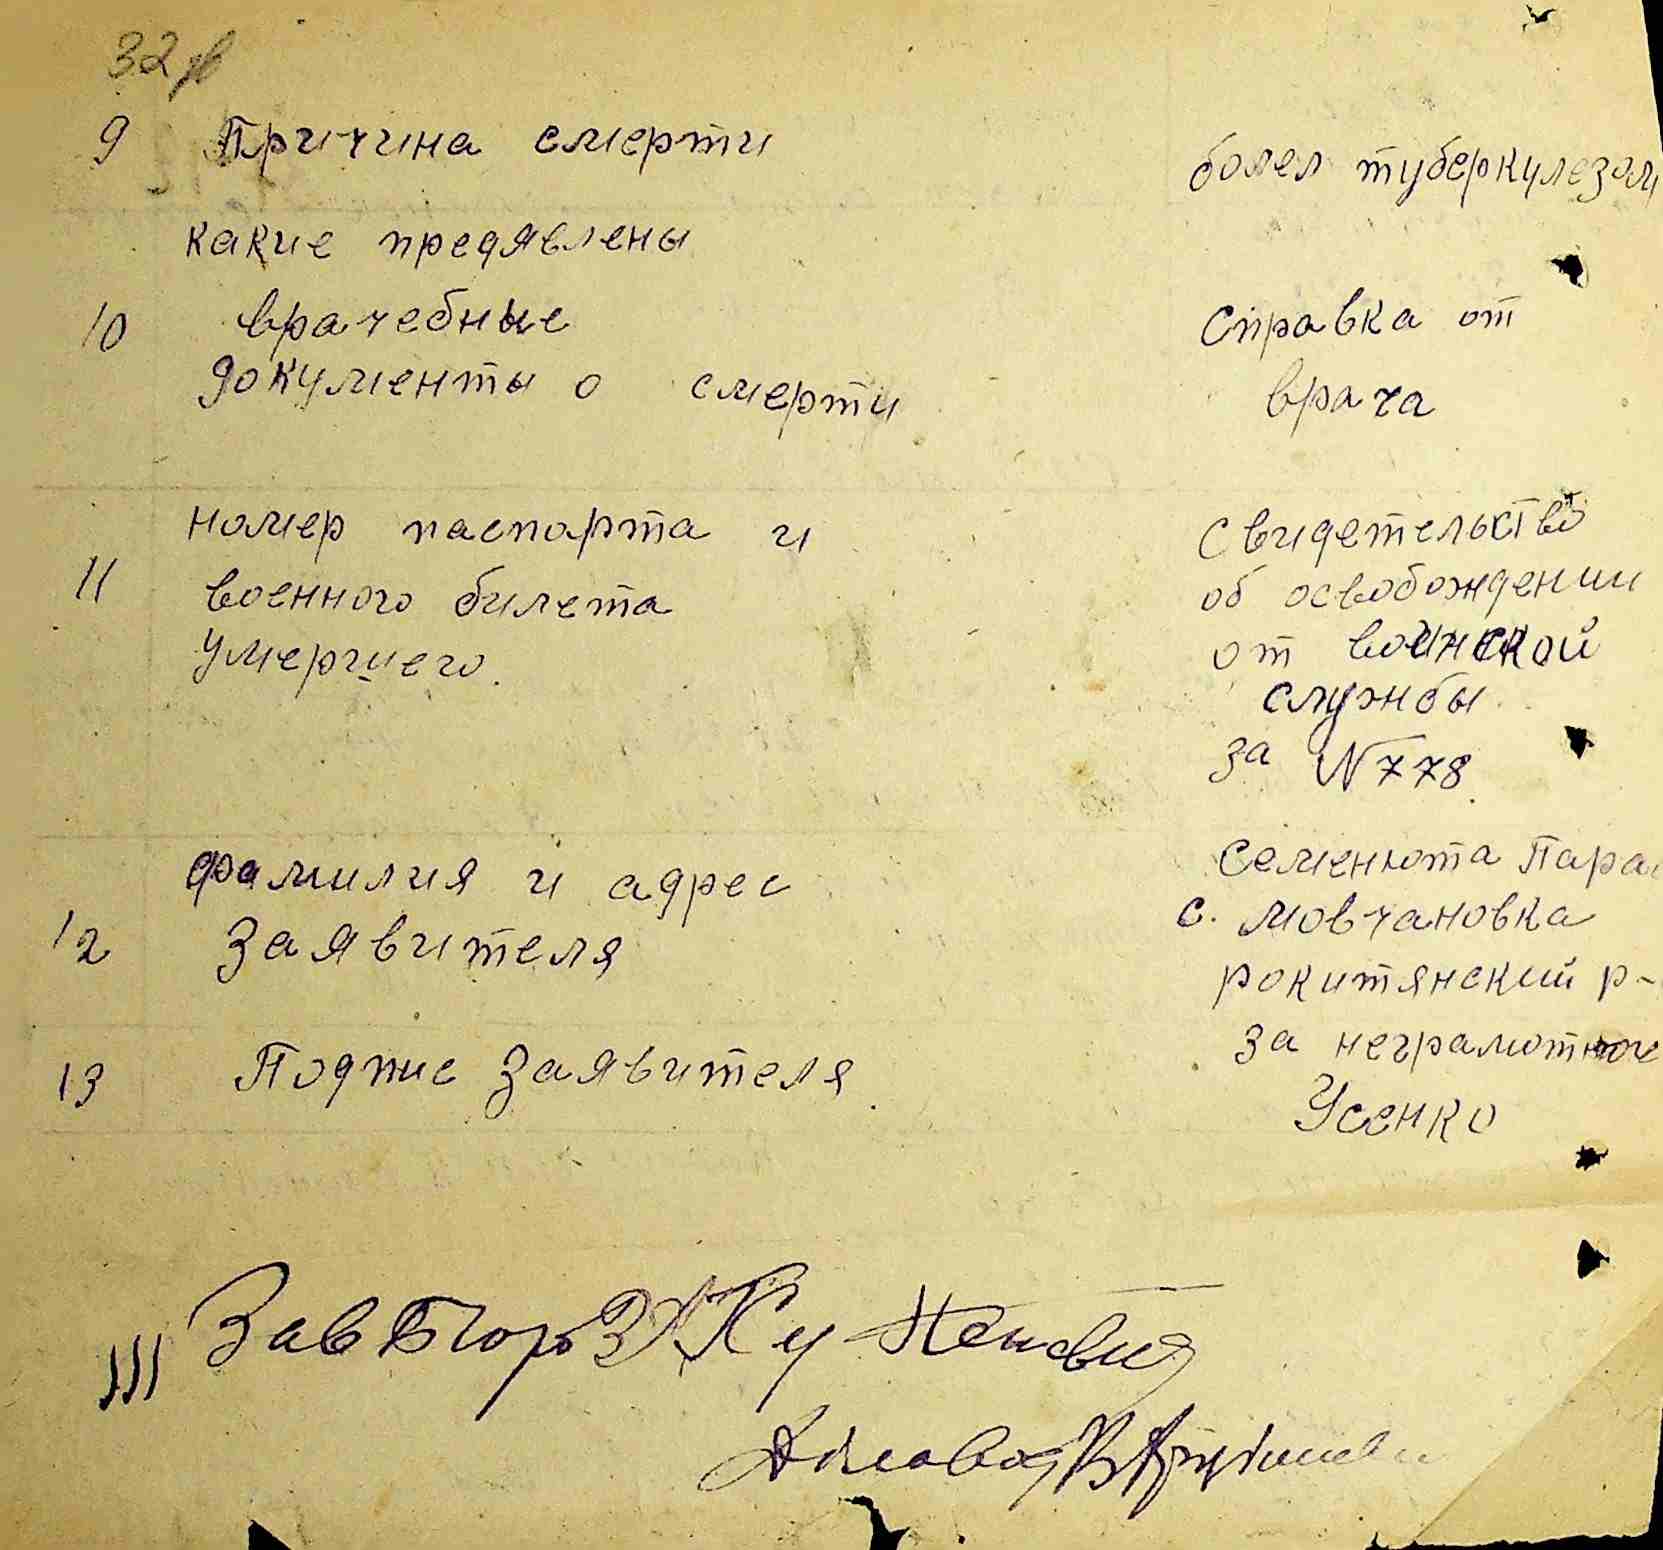 32
9 Причина смерти болел туберкулезом
какие предявлены
10 врачебные справка от
документы о смерти врача
номер паспорта и свидетельство
11 военного билета об освобождении
умершего. от воинской
службы
за N 778
фамилия и адрес Семенюта Пара
12 заявителя с. мовчановка
рокитянский р-
13 Подпис заявителя за неграмотн
Усенко
Зав Бюро